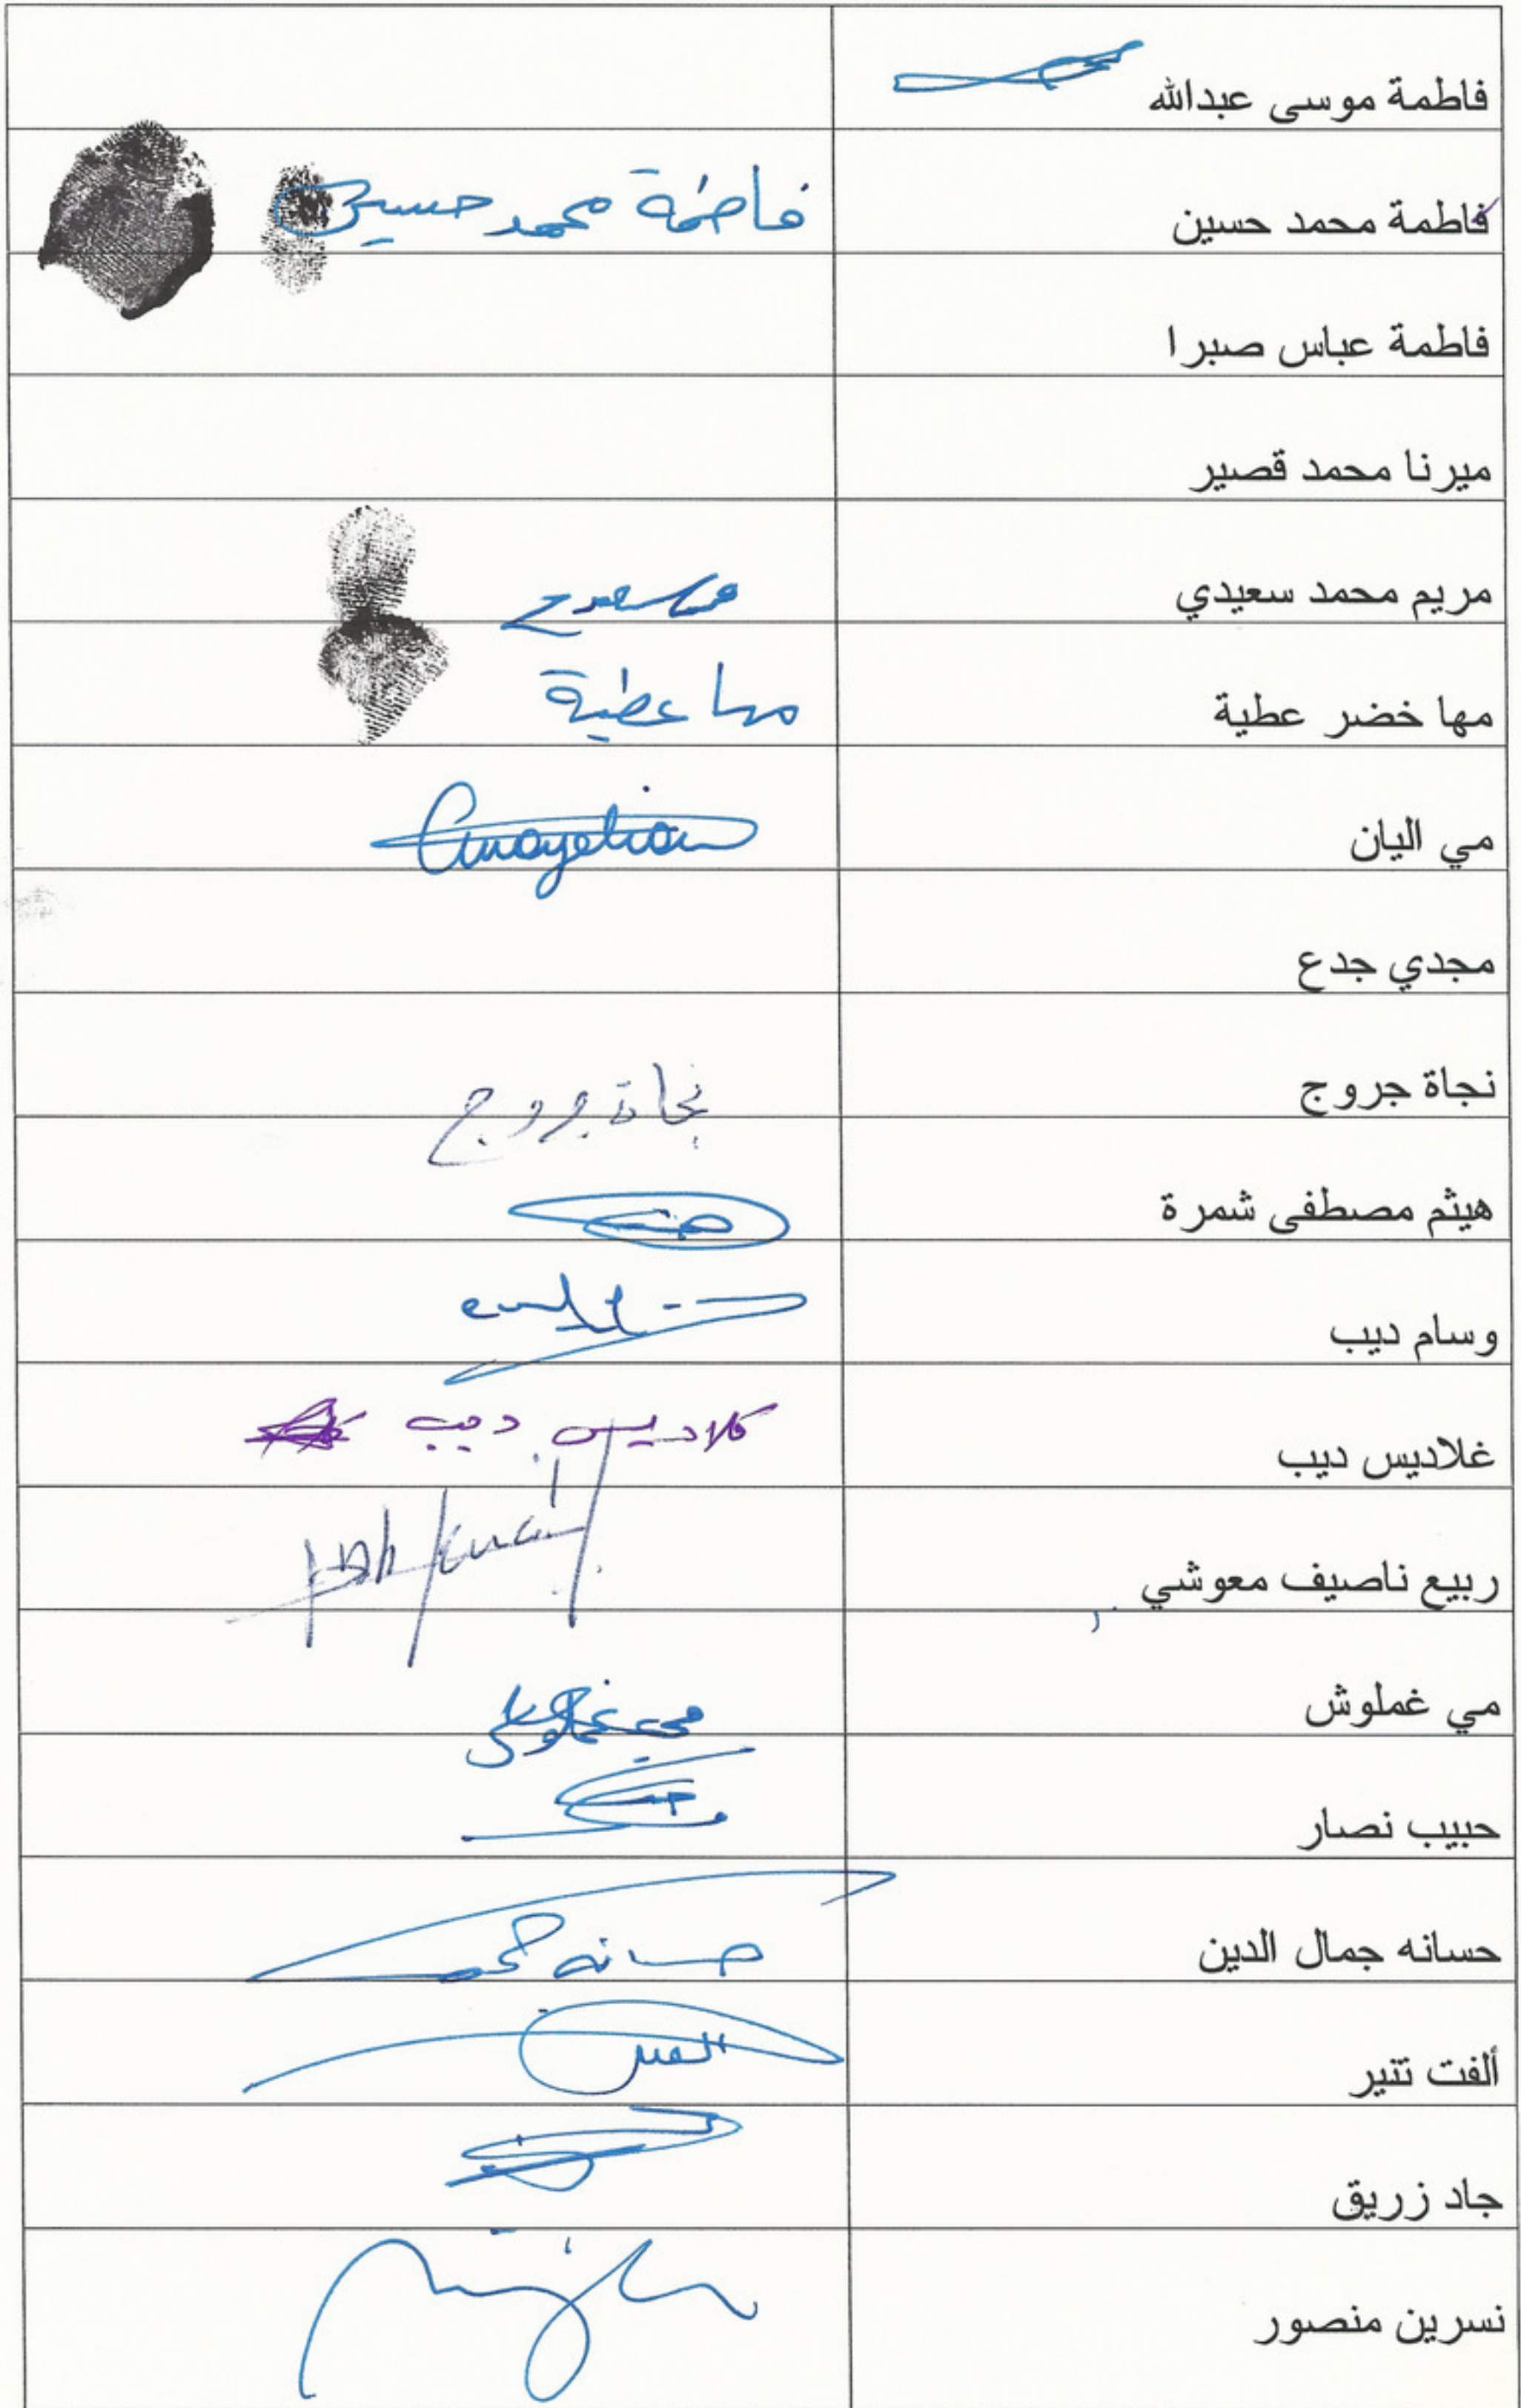 فاطمة موسى عبدالله
فاطمة محمد حسين فاطمة محمد حسين
فاطمة عباس صبرا
ميرنا محمد قصير
مريم محمد سعيدي
مها خضر عطية مها عطية
مي اليان
مجدي جدع
نجاة جروج نجاة جروج
هيثم مصطفى شمرة
وسام ديب
غلاديس ديب كلاديس ديب
ربيع ناصيف معوشي
مي غملوش مي غملوش
حبيب نصار
حسانه جمال الدين حسانه
ألفت تنير
جاد زريق
نسرين منصور